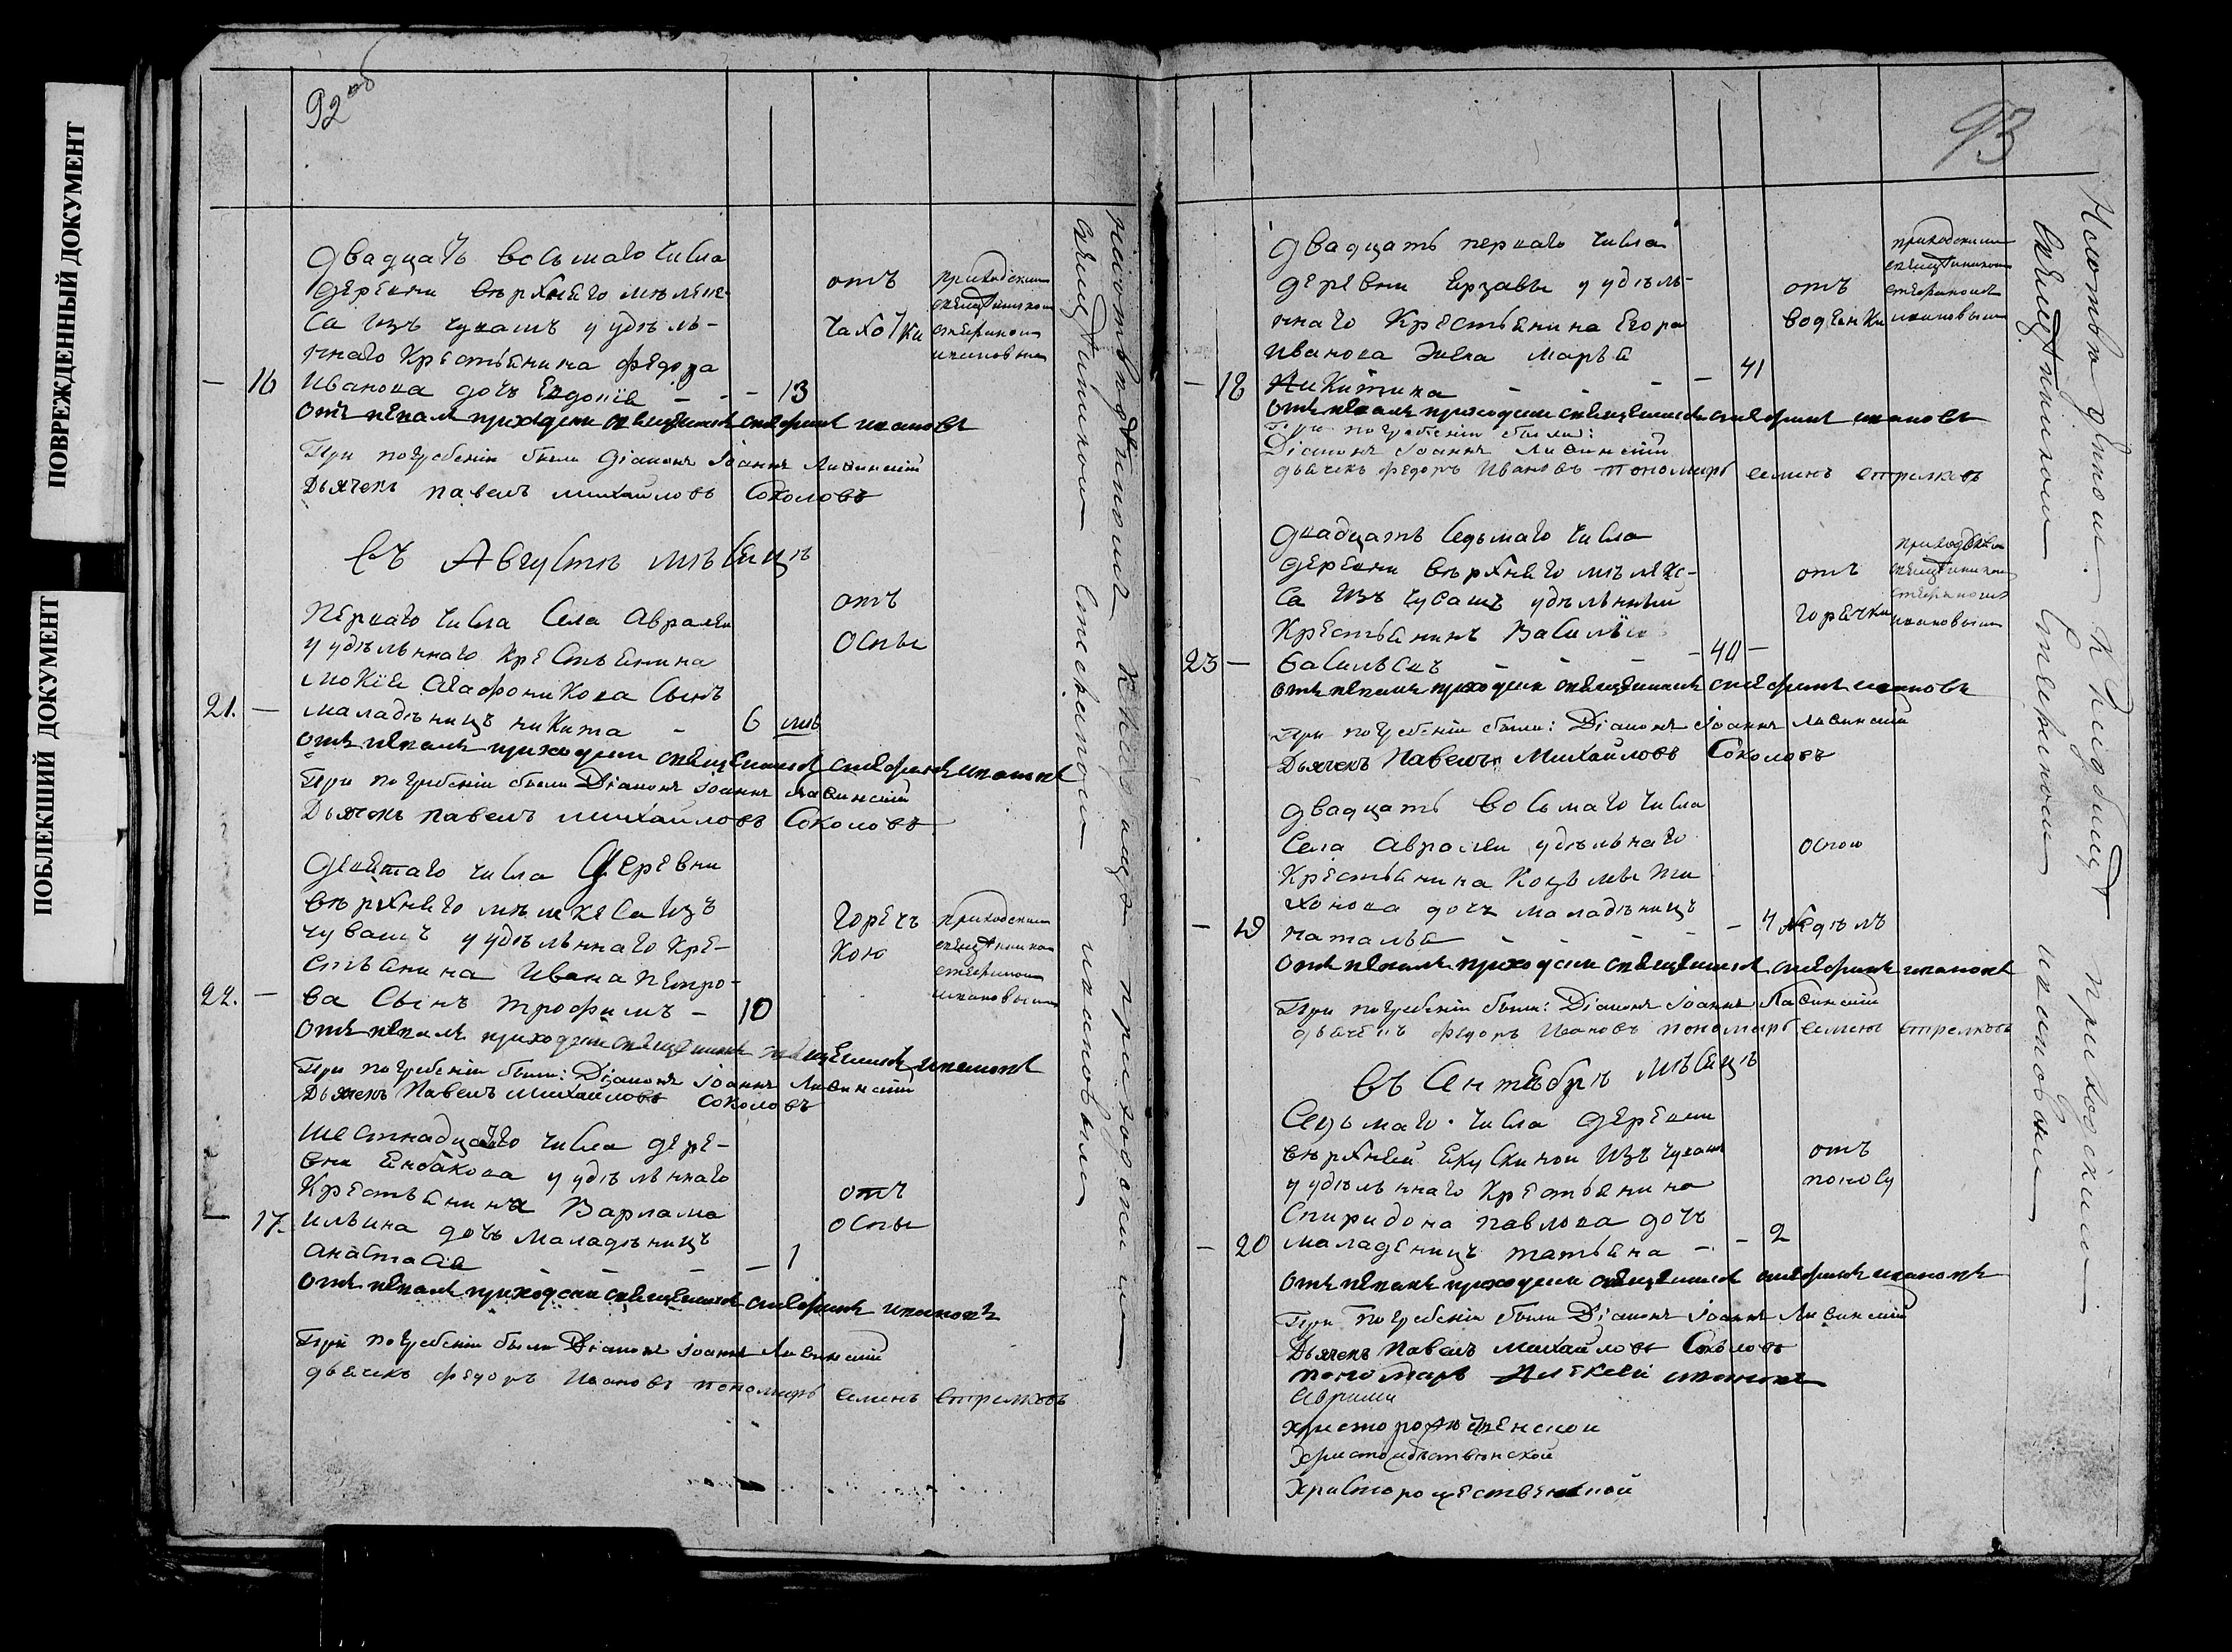 ПОВРЕЖДЕННЫЙ ДОКУМЕНТ
ПОБЛЕКШИЙ ДОКУМЕНТ
92 об
двадцать восьмаго числа
деревни верхняго мѣлеке-
са изъ чувашъ удѣль-
наго Крестьянина Федора
Иванова дочь Евдокія - - - 13
- 16
отъ
чахотки
приходскимъ
священникомъ
стефаномъ
ивановымъ
отпѣвалъ приходскій священникъ стефанъ ивановъ
При погребеніи были Діаконъ Іоаннъ Ливинскій
Дьячекъ павелъ михайловъ Соколовъ
Въ Августѣ мѣсяцѣ
перваго числа Села Авралей
удѣльнаго крестьянина
мокія Агафоникова Сынъ
21. - маладѣницъ никита - 6 мѣ
отъ
оспы
отпѣвалъ приходскій священникъ стефанъ ивановъ
При погребеніи были Діаконъ Іоаннъ Ливинскій
Дьячекъ павелъ михайловъ Соколовъ
девятаго числа Деревни
верхняго мѣлекеса изъ
чувашъ удѣльнаго кре-
стьянина Ивана петро-
22. - ва Сынъ трофимъ - 10
горяч
кою
приходскимъ
священникомъ
стефаномъ
ивановымъ
отпѣвалъ приходскій священникъ священникъ ивановъ
При погребеніи были: Діаконъ Іоаннъ Ливинскій
Дьячекъ Павелъ михайловъ Соколовъ
шестнадцатаго числа дере-
вни Енбакова удѣльнаго
Крестьянина Варлама
- 17. ильина дочь маладѣницъ
анастасія - - - 1
отъ
оспы
отпѣвалъ приходскій священникъ стефанъ ивановъ
При погребеніи были Діаконъ Іоаннъ Ливинскій
дьячекъ федоръ Ивановъ пономарь семенъ стрелковъ
священникомъ Стефаномъ ивановымъ
93
двадцать перваго числа
деревни Ерзавы удѣль-
наго Крестьянина Егора
Иванова Жена марья
- 18 Никитина - - - - 41
отъ
водянки
приходскимъ
священникомъ
стефаномъ
ивановымъ
отпѣвалъ приходскій священникъ стефанъ ивановъ
При погребеніи были:
Діаконъ Іоаннъ Ливинскій
дьячекъ федоръ Ивановъ пономарь семенъ стрелковъ
двадцать седьмаго числа
деревни верхняго мѣлеке-
са изъ чувашъ удѣльный
Крестьянинъ Василій
23 - Васильевъ - - - - 40 -
отъ
горячки
приходскимъ
священникомъ
стефаномъ
ивановымъ
отпѣвалъ приходскій священникъ стефанъ ивановъ
При погребеніи были: Діаконъ Іоаннъ Ливинскій
Дьячекъ Павелъ Михайловъ Соколовъ
двадцать восьмаго числа
Села Авралей удѣльнаго
Крестьянина Козьмы Ти
хонова дочь маладѣницъ
- 19 наталья - - - - 4 недѣль
оспою
отпѣвалъ приходскій священникъ стефанъ ивановъ
При погребеніи были: Діаконъ Іоаннъ Ливинскій
дьячекъ федоръ Ивановъ пономарь семенъ стрелковъ
Въ Сентябрѣ мѣсяцѣ
Седьмаго числа деревни
верхней Якушкиной изъ чувашъ
удѣльнаго Крестьянина
Спиридона павлова дочь
- 20 маладеницъ татьяна - - 2
отъ
поносу
отпѣвалъ приходскій священникъ стефанъ ивановъ
При погребеніи были Діаконъ Іоаннъ Ливинскій
Дьячекъ Павелъ Михайловъ Соколовъ
пономарь Алексей ивановъ
христорождественской
Священникомъ Стефаномъ ивановымъ